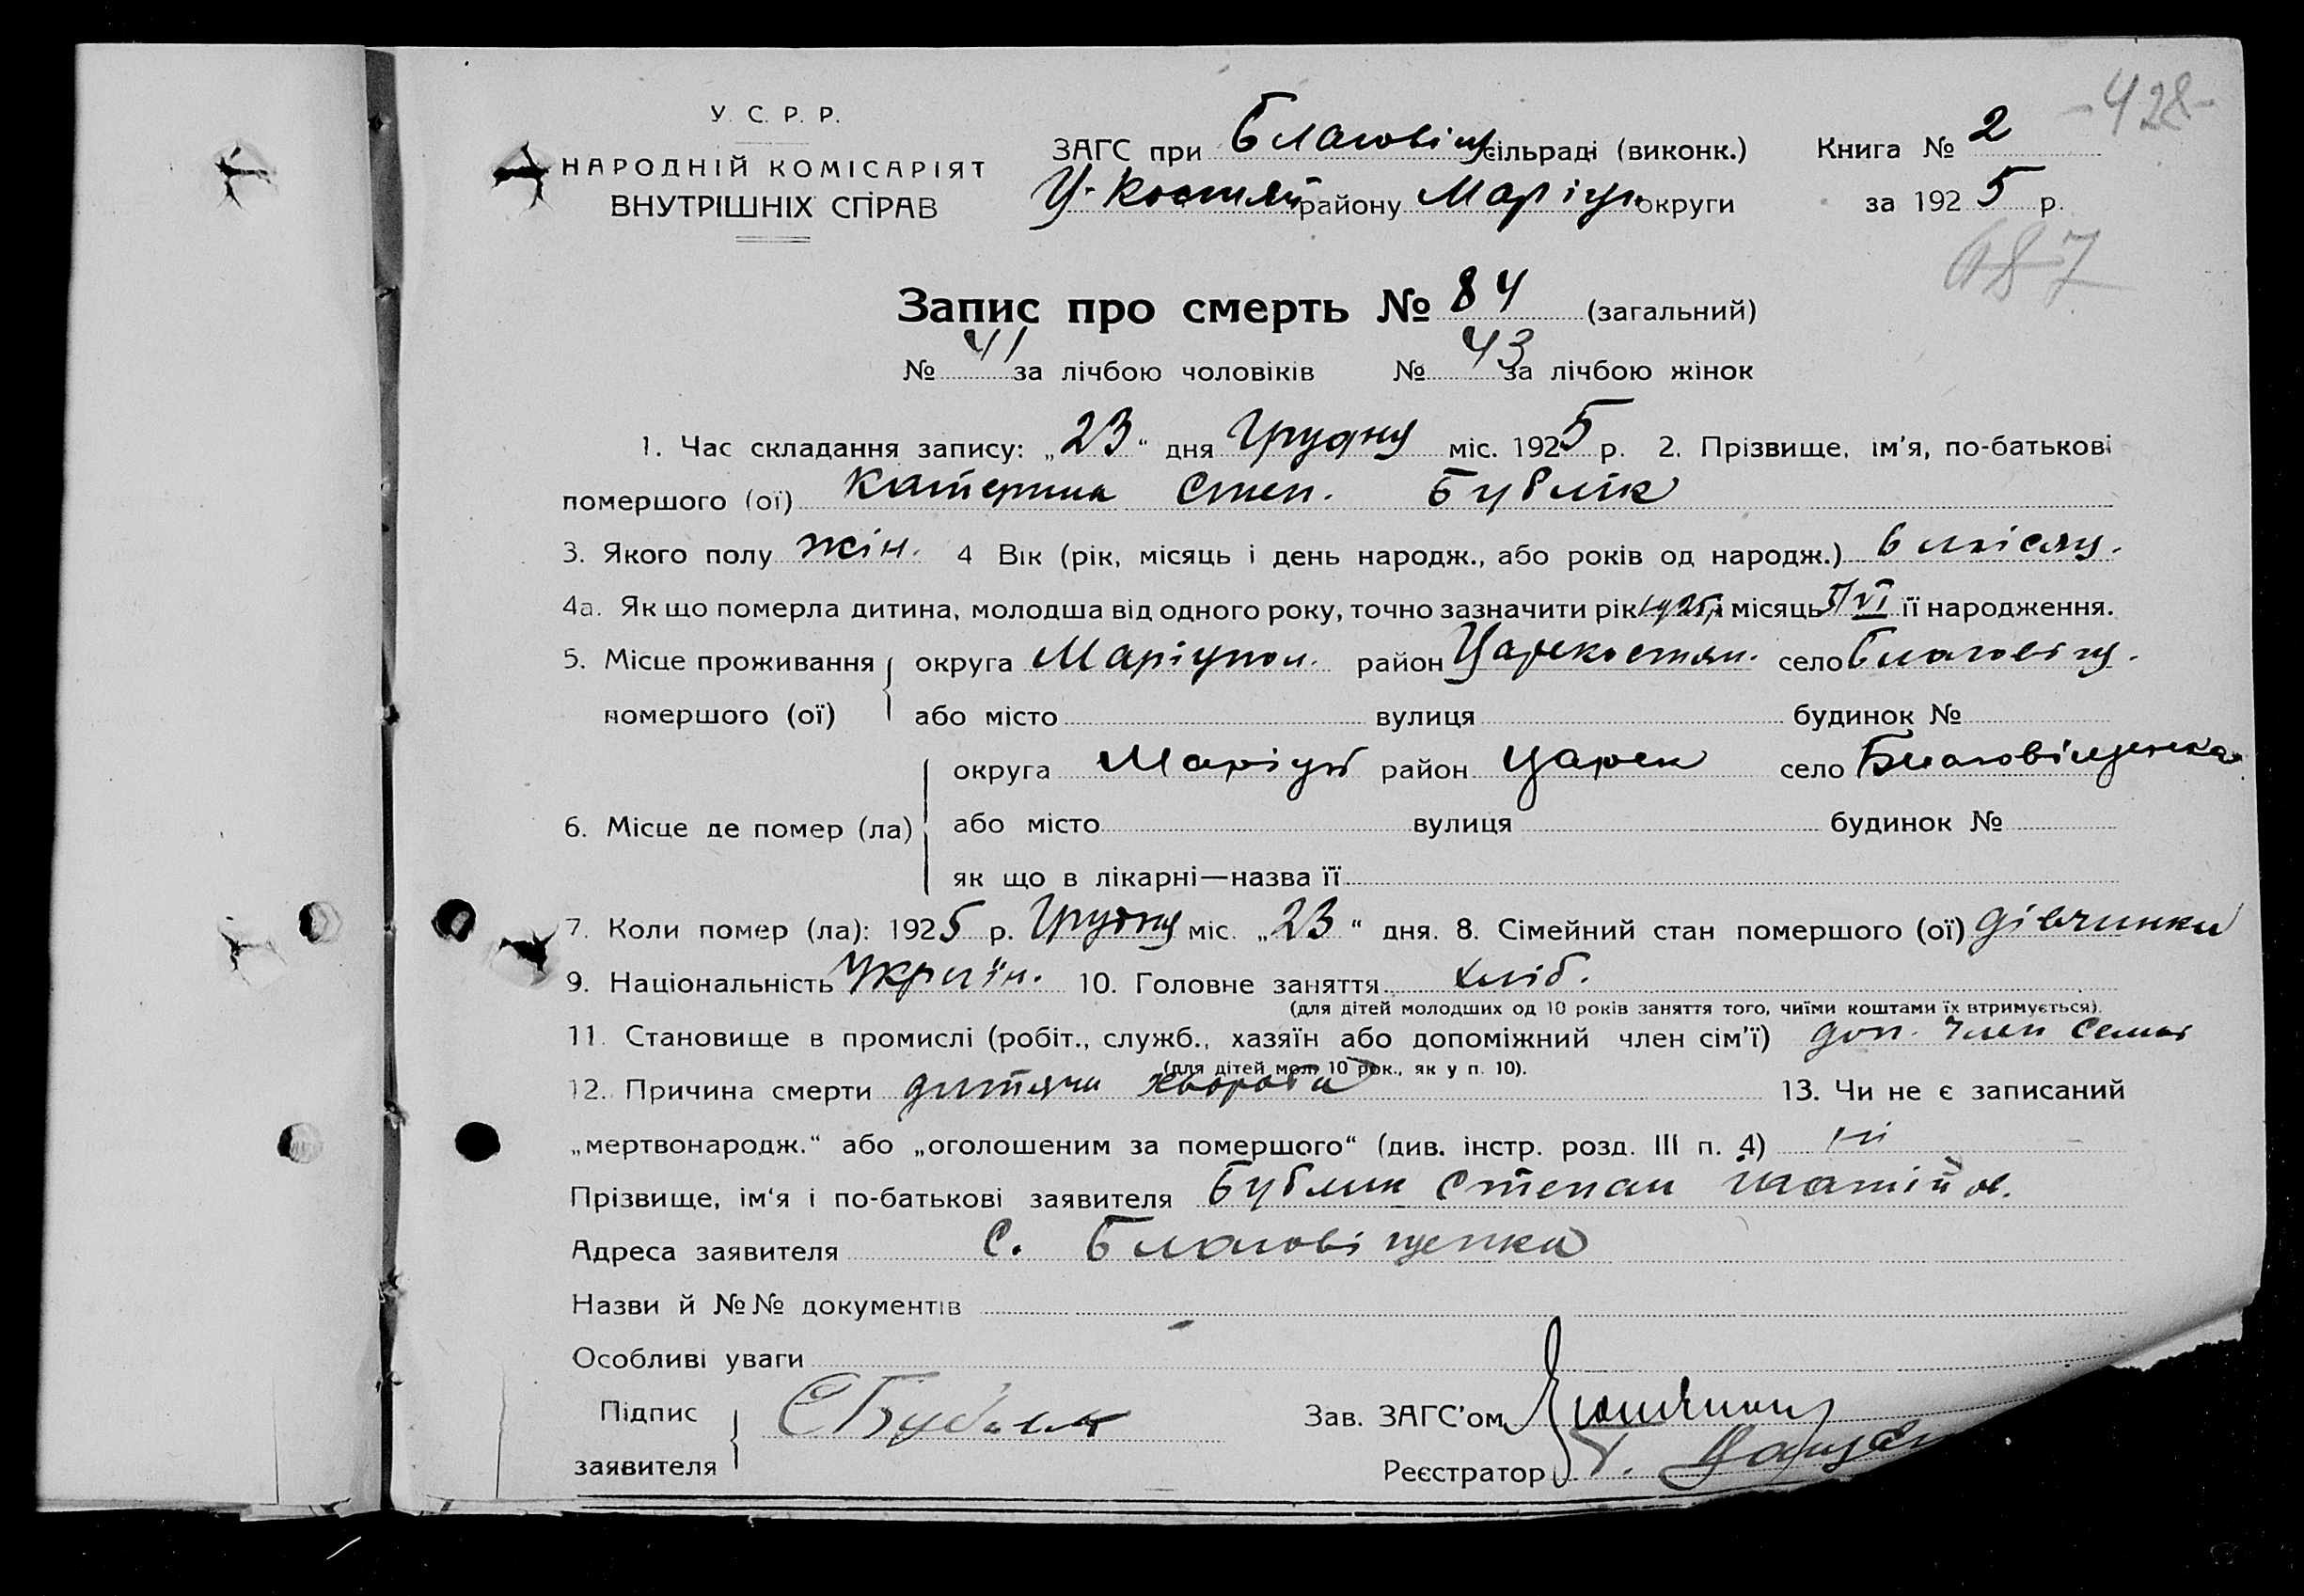 -428-
У. С. Р. Р.
НАРОДНІЙ КОМІСАРІЯТ
ВНУТРІШНІХ СПРАВ
ЗАГС при Благовіщ сільраді (виконк.) Книга № 2
Ц-Костян району Маріуп. округи за 1925 р.
687
Запис про смерть № 84 (загальний)
№ 41 за лічбою чоловіків № 43 за лічбою жінок
1. Час складання запису: „23“ дня Грудня міс. 1925 р. 2. Прізвище, ім'я, по-батькові
помершого (ої) Катерина Степ. Бублік
3. Якого полу жін. 4 Вік (рік, місяць і день народж., або років од народж.) 6 місяц.
4а. Як що померла дитина, молодша від одного року, точно зазначити рік 1925 р. і місяць 5/VI її народження.
5. Місце проживання округа Маріупол. район Царекостян. село Благовіщ.
помершого (ої) або місто вулиця будинок №
округа Маріуп район Царек село Благовіщенка
6. Місце де помер (ла) або місто вулиця будинок №
як що в лікарні—назва її
7. Коли помер (ла): 1925 р. Грудня міс. „23“ дня. 8. Сімейний стан помершого (ої) дівчинка
9. Національність Україн. 10. Головне заняття хліб.
(для дітей молодших од 10 років заняття того, чиїми коштами їх втримується).
11. Становище в промислі (робіт., служб., хазяїн або допоміжний член сім'ї) доп. член семьі
(для дітей мол. 10 рок., як у п. 10).
12. Причина смерти дитяча хвороба 13. Чи не є записаний
„мертвонародж.“ або „оголошеним за помершого“ (див. інстр. розд. III п. 4) ні
Прізвище, ім'я і по-батькові заявителя Бублик Степан Матійов.
Адреса заявителя с. Благовіщенка
Назви й №№ документів
Особливі уваги
Підпис
заявителя СБублик
Зав. ЗАГС'ом
Реєстратор